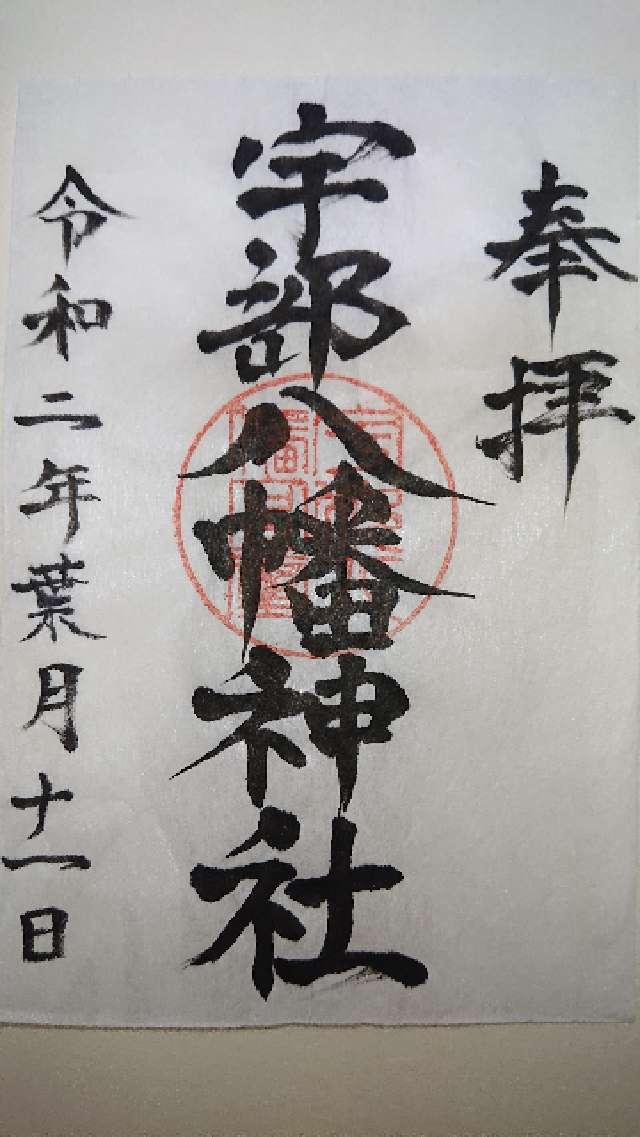 奉拝
宇部八幡神社
令和二年葉月十一日